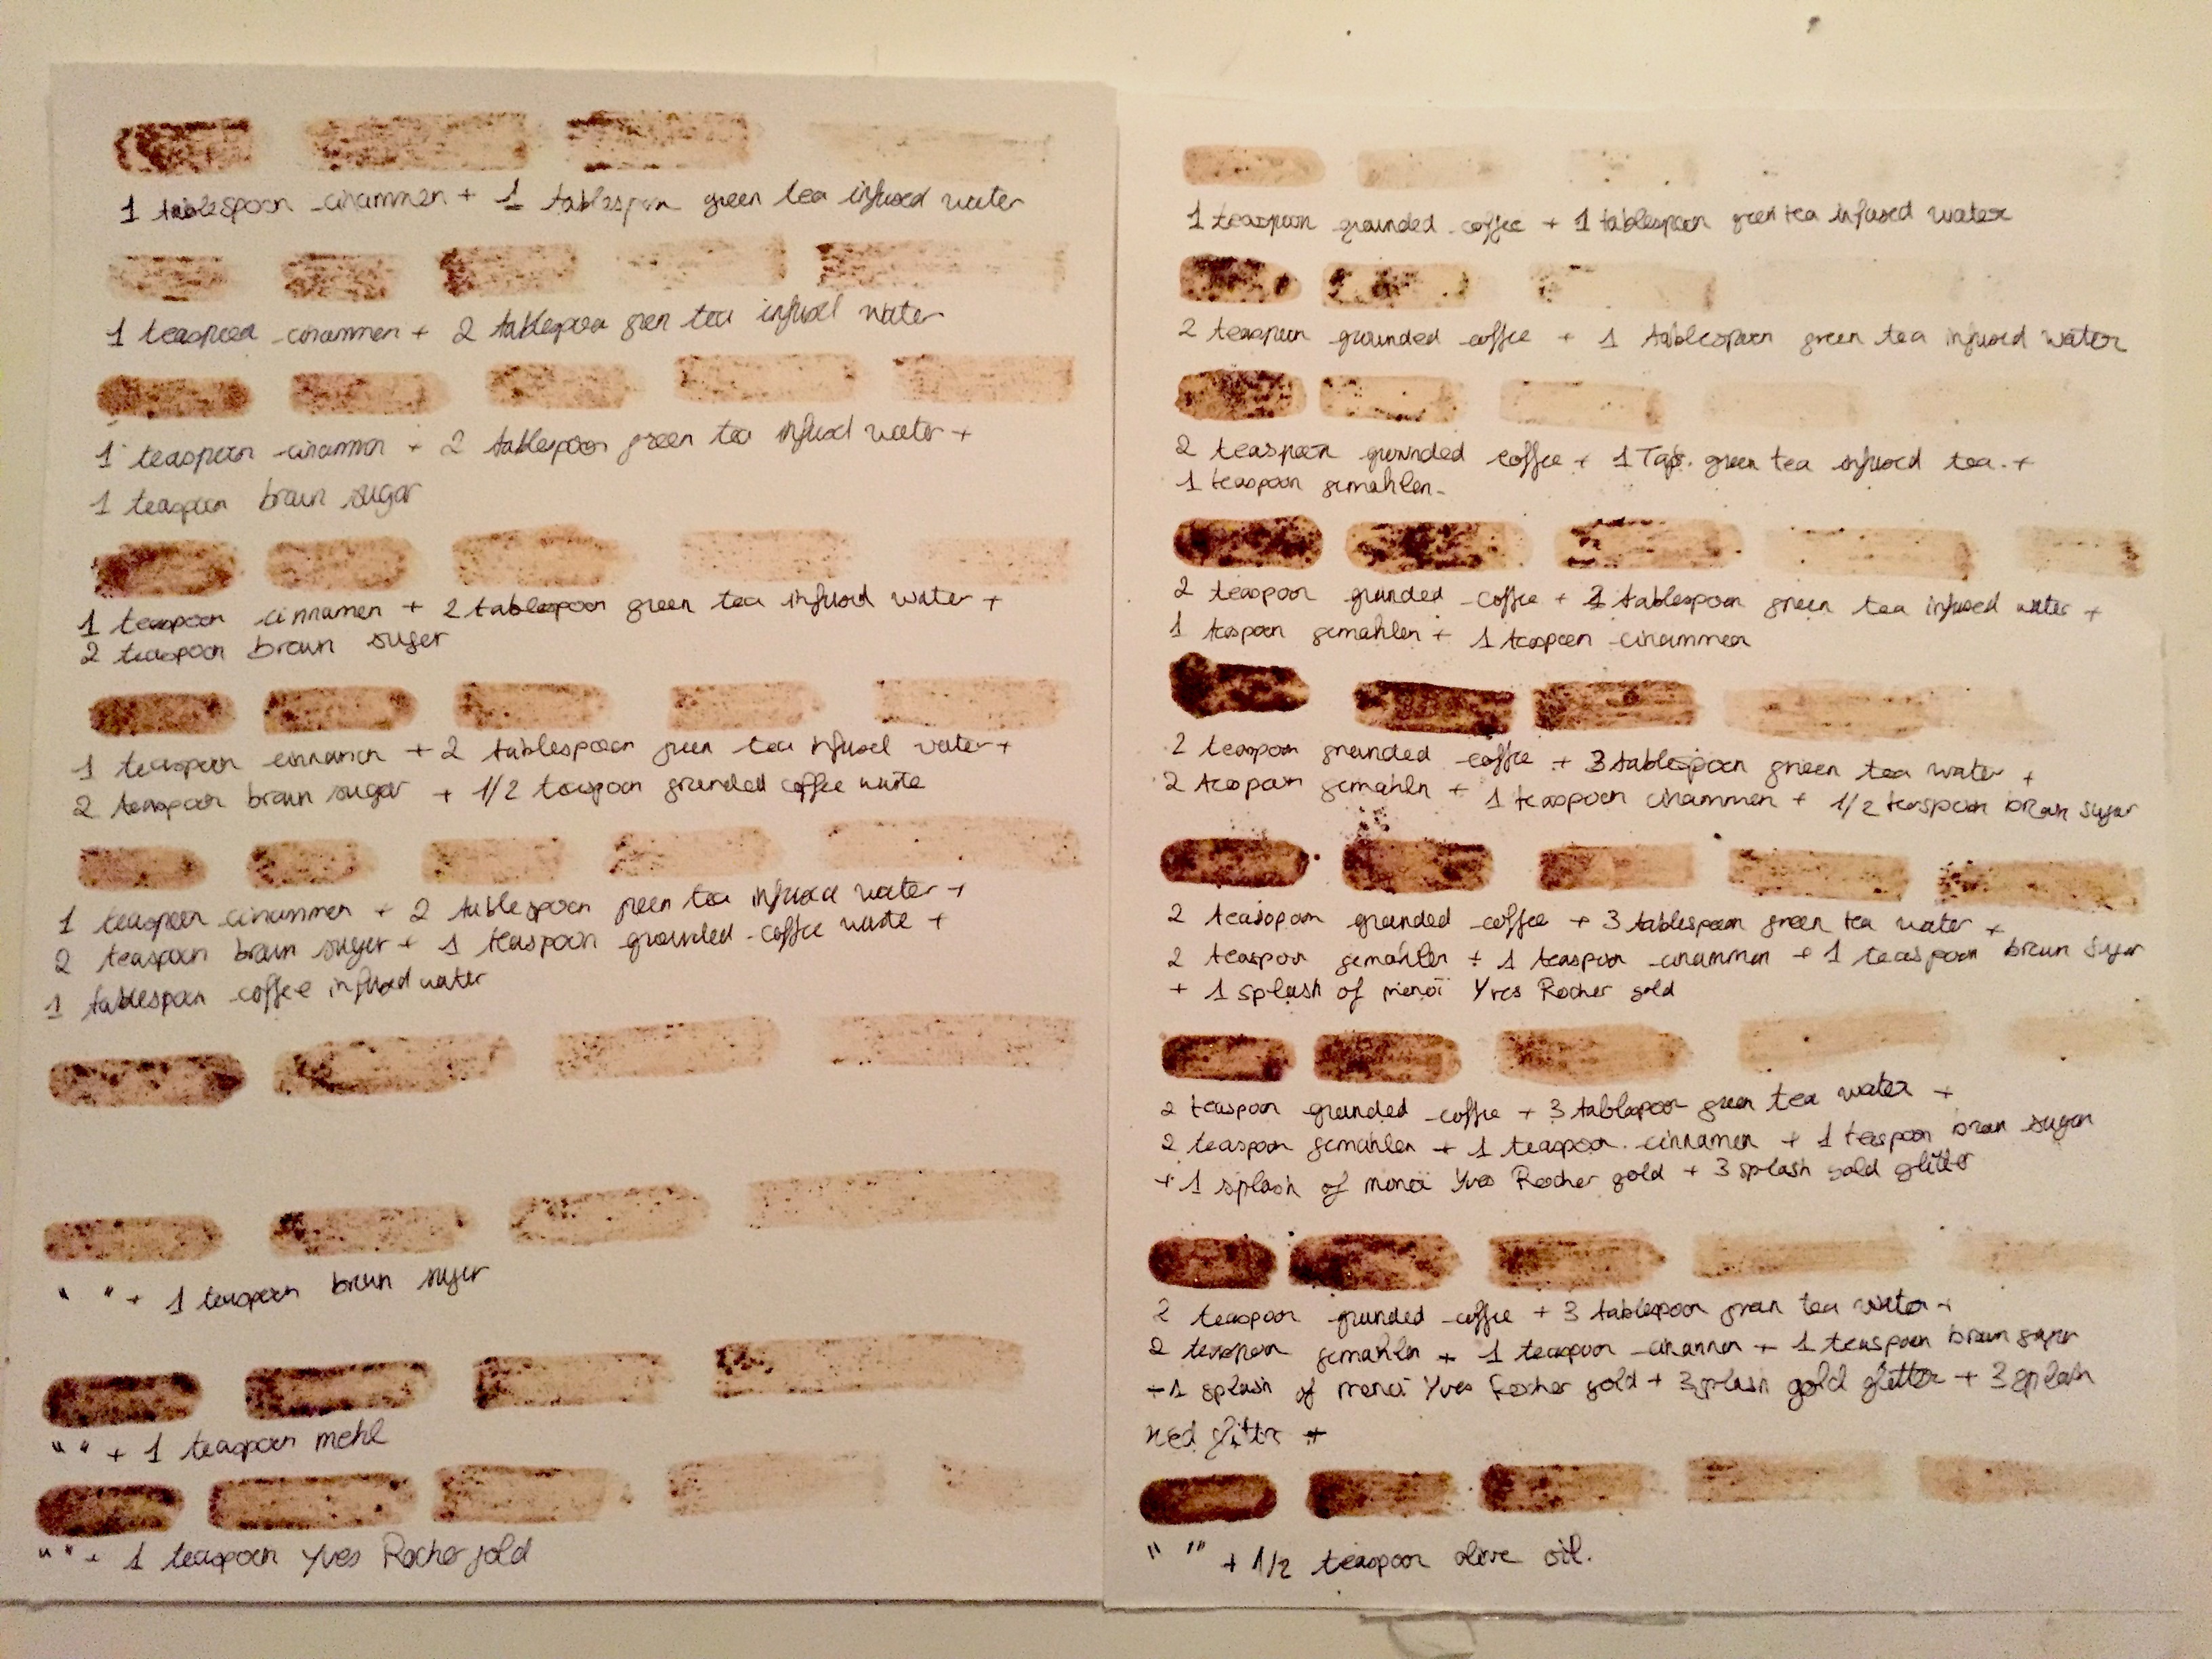 1 tablespoon cinammen + 1 tablespoon green tea infused water
1 teaspoon cinammen + 2 tablespoon green tea infused water
1 teaspoon cinammon + 2 tablespoon green tea infused water +
1 teaspoon braun sugar
1 teaspoon cinnamen + 2 tablespoon green tea infused water +
2 teaspoon braun suger
1 teaspoon cinnamon + 2 tablespoon green tea infused water +
2 teaspoon braun sugar + 1/2 teaspoon grounded coffee waste
1 teaspoon cinammen + 2 tablespoon green tea infused water +
2 teaspoon braun suger + 1 teaspoon grounded coffee waste +
1 tablespoon coffee infused water
" " + 1 teaspoon braun suger
" " + 1 teaspoon mehl
" " + 1 teaspoon Yves Rocher gold
1 teaspoon grounded coffee + 1 tablespoon green tea infused water
2 teaspoon grounded coffee + 1 tablespoon green tea infused water
2 teaspoon grounded coffee + 1 green tea infused tea. +
1 teaspoon gemahlen
2 teaspoon grounded coffee + tablespoon green tea infused water +
1 teaspoon gemahlen + 1 teaspoon cinammen
2 teaspoon grounded coffee + 3 tablespoon green tea water +
2 teaspoon gemahln + 1 teaspoon cinammen + 1/2 teaspoon braun suger
2 teaspoon grounded coffee + 3 tablespoon green tea water +
2 teaspoon gemahlen + 1 teaspoon cinammon + 1 teaspoon braun suger
+ 1 splash of monoï Yves Rocher gold
2 teaspoon grounded coffee + 3 tablespoon green tea water +
2 teaspoon gemahlen + 1 teaspoon cinnamen + 1 teaspoon braun sugar
+ 1 splash of monoï Yves Rocher gold + 3 splash gold glitter
2 teaspoon grounded coffee + 3 tablespoon green tea water +
2 teaspoon gemahlen + 1 teaspoon cinammon + 1 teaspoon braun suger
+ 1 splash of monoï Yves Rocher gold + 3 splash gold glitter + 3 splash
red glittr +
" " + 1/2 teaspoon olive oil.